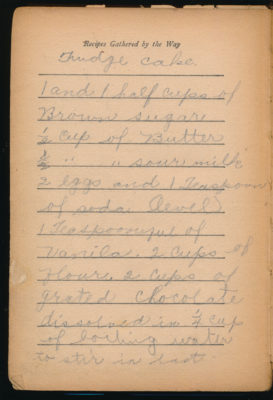 Recipes Gathered by the Way
Frudge cake
1 and 1 half cups of
Brown sugar
½ cup of Butter
½ " " sour milk
2 eggs and 1 Teaspoon
of soda Level
1 Teaspoonful of
Vanilae 2 cups of
flour, 2 cups of
grated chocolate
dissolved in ½ cup
of boiling water
to stir in last